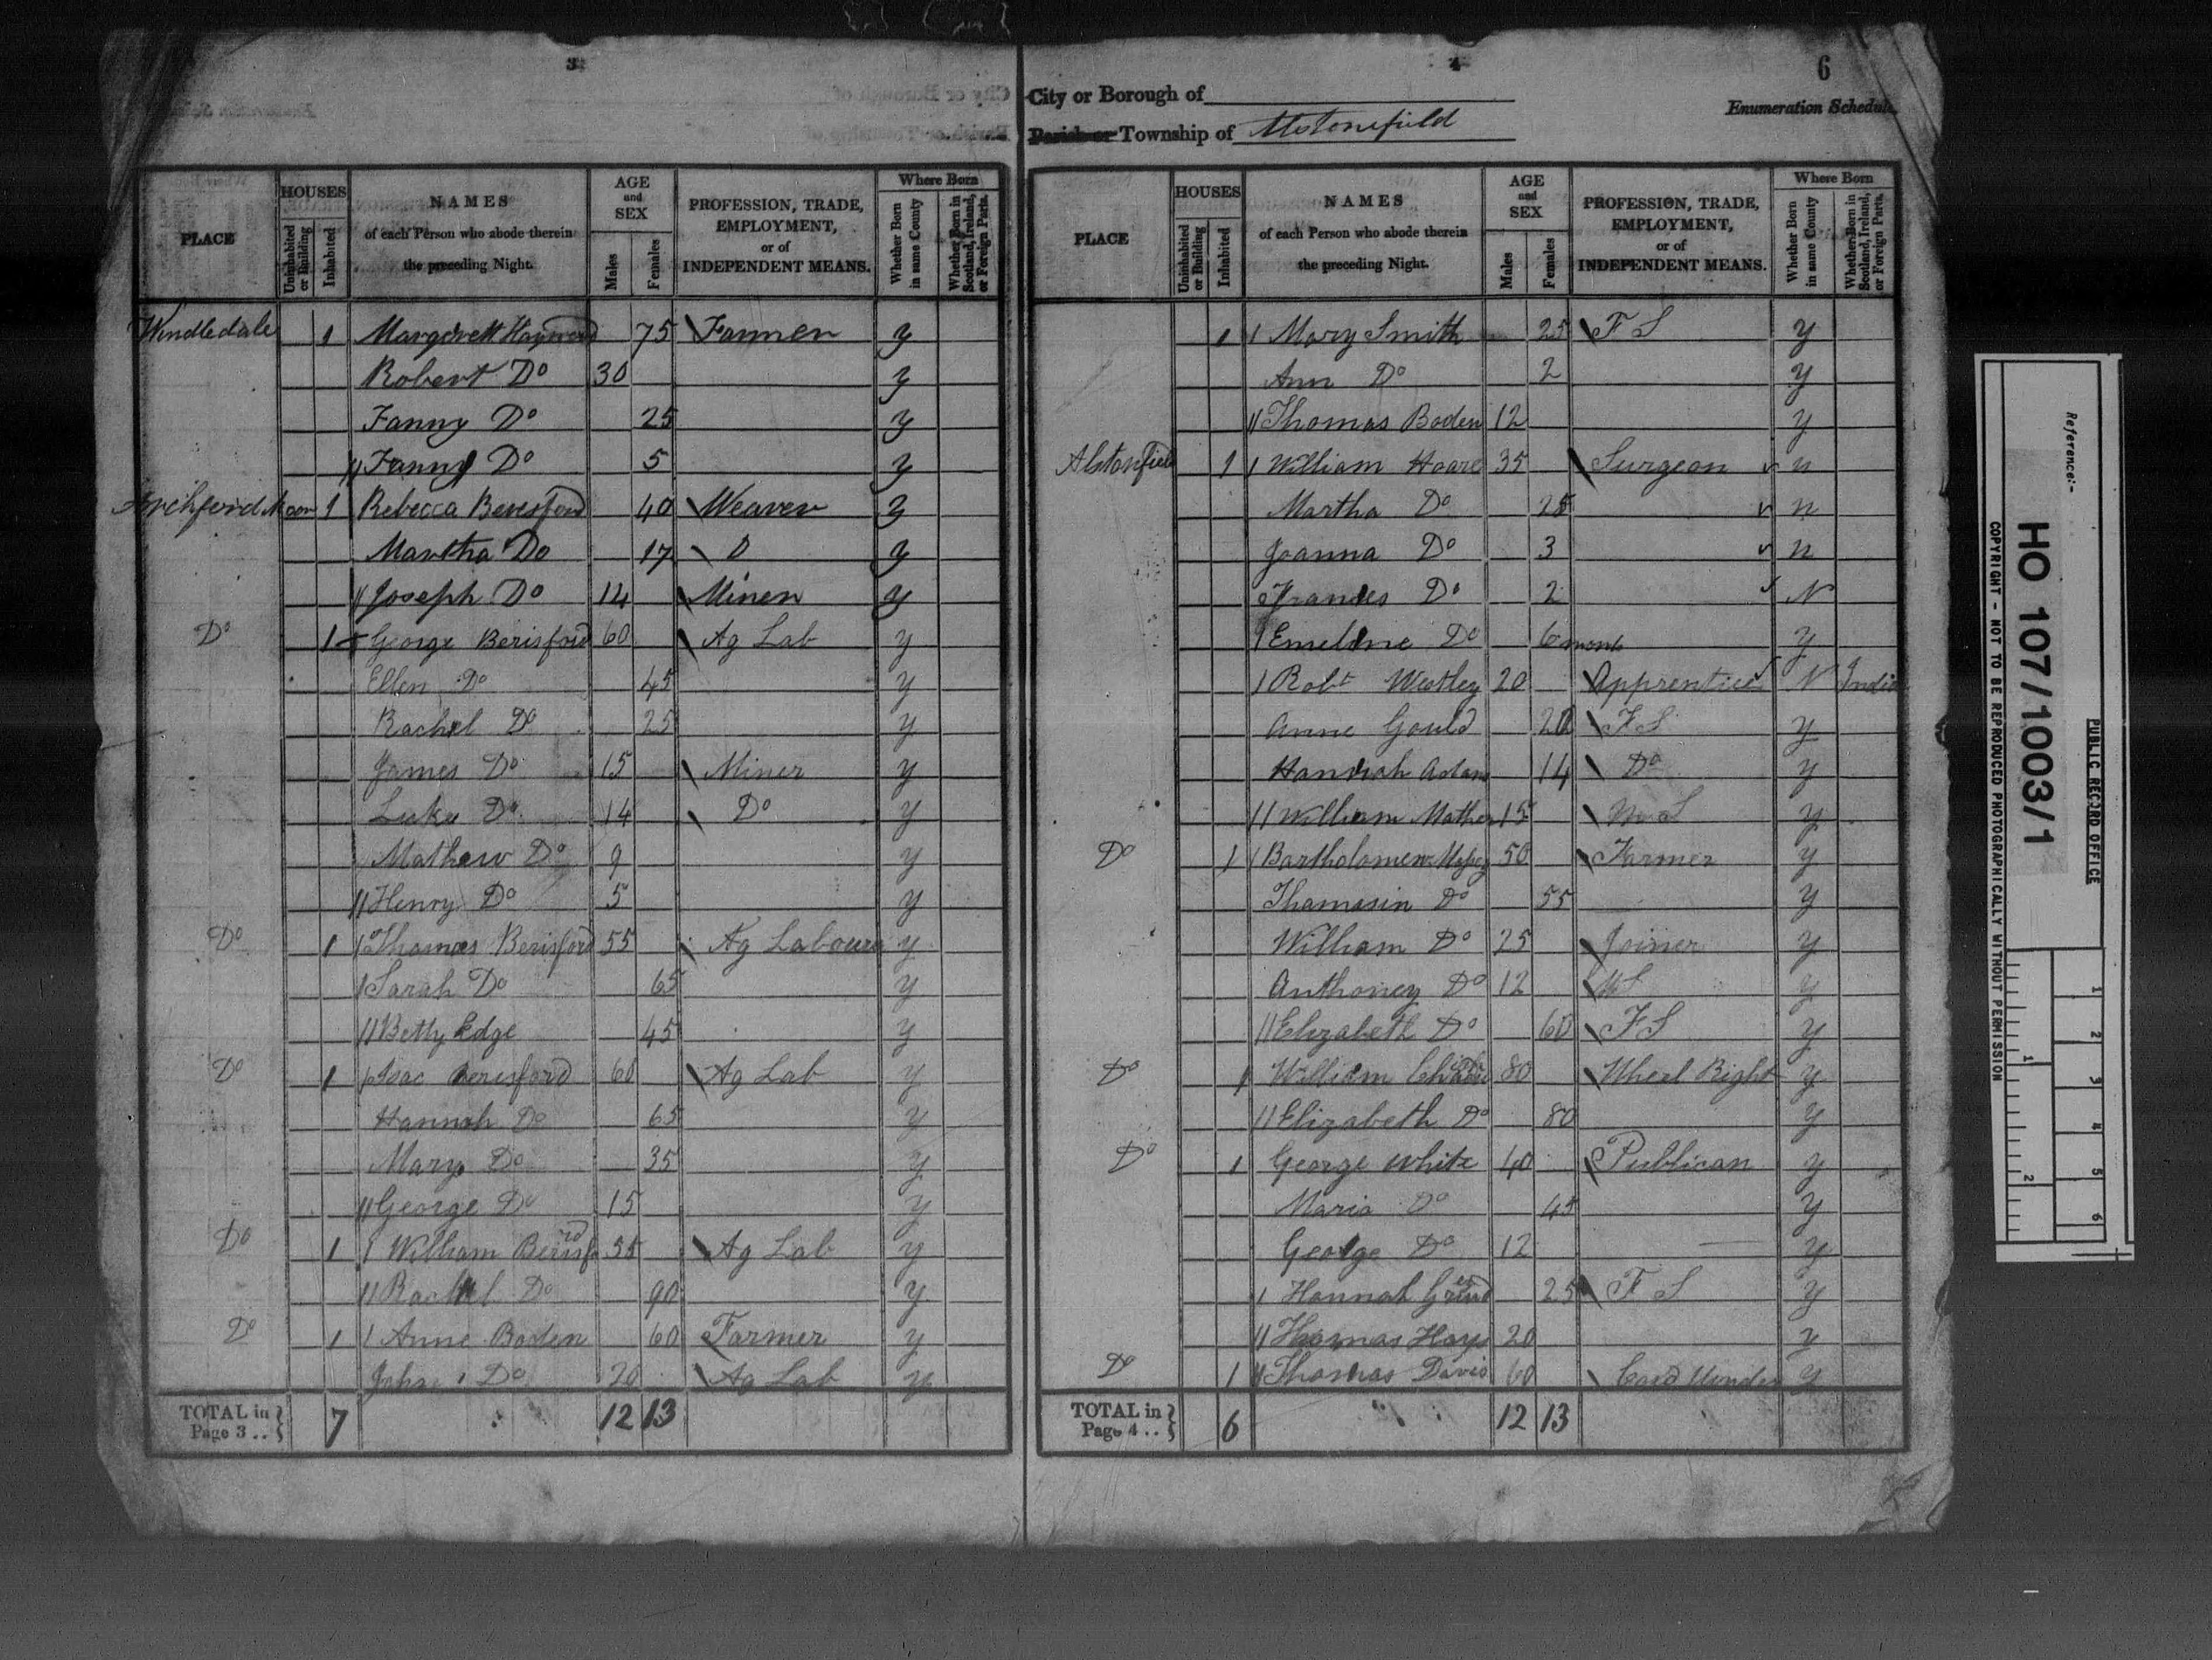 3
HOUSES
NAMES
AGE
and
SEX
PROFESSION, TRADE,
EMPLOYMENT,
or of
INDEPENDENT MEANS.
Where Born
PLACE
Uninhabited or Building
Inhabited
of each Person who abode therein
the preceding Night.
Males
Females
Whether Born in same County
Whether Born in Scotland, Ireland, or Foreign Parts.
Windledale 1 Margrett 75 Farmer y
Robert Do 30 y
Fanny Do 25 y
Fanny Do 5 y
Archford Moor 1 Rebecca Beresford 40 Weaver y
Martha Do 17 D y
Joseph Do 14 Miner y
Do 1 George Berisford 60 Ag Lab y
Ellen Do 45 y
Rachel Do 25 y
James Do 15 Miner y
Luke Do 14 Do y
Mathew Do 9 y
Henry Do 5 y
Do 1 Thomas Berisford 55 Ag Labourer y
Sarah Do 65 y
Betty Edge 45 y
Do 1 Isac Berisford 60 Ag Lab y
Hannah Do 65 y
Mary Do 35 y
George Do 15 y
Do 1 William Berisford 55 Ag Lab y
Rachel Do 90 y
Do 1 Anne Boden 60 Farmer y
John Do 20 Ag Lab y
TOTAL in Page 3 .. } 7 12 13
4
6
City or Borough of
Enumeration Schedule.
Parish or Township of Alstonefield
HOUSES
NAMES
AGE
and
SEX
PROFESSION, TRADE,
EMPLOYMENT,
or of
INDEPENDENT MEANS.
Where Born
PLACE
Uninhabited or Building
Inhabited
of each Person who abode therein
the preceding Night.
Males
Females
Whether Born in same County
Whether Born in Scotland, Ireland, or Foreign Parts.
1 Mary Smith 25 F S y
Ann Do 2 y
Thomas Boden 12 y
Alstonfield 1 William Hoare 35 Surgeon n
Martha Do 25 n
Joanna Do 3 n
Frances Do 2 N
Emeline Do 6 month y
Robt 20 Apprentice N India
Anne Gould 20 F S y
Hannah Adams 14 Do y
William Mather 15 M S y
Do 1 Bartholomew 50 Farmer y
Thamasin Do 55 y
William Do 25 Joiner y
Anthoney Do 12 MS y
Elizabeth Do 60 F S y
Do 1 William 80 Wheel Right y
Elizabeth Do 80 y
Do 1 George White 40 Publican y
Maria Do 45 y
George Do 12 y
Hannah 25 F S y
Thomas Hays 20 y
Do 1 Thomas Davis 60 y
TOTAL in Page 4 .. } 6 12 13
Reference:-
HO 107/1003/1
PUBLIC RECORD OFFICE
COPYRIGHT - NOT TO BE REPRODUCED PHOTOGRAPHICALLY WITHOUT PERMISSION
1 2 3 4 5 6
1 2